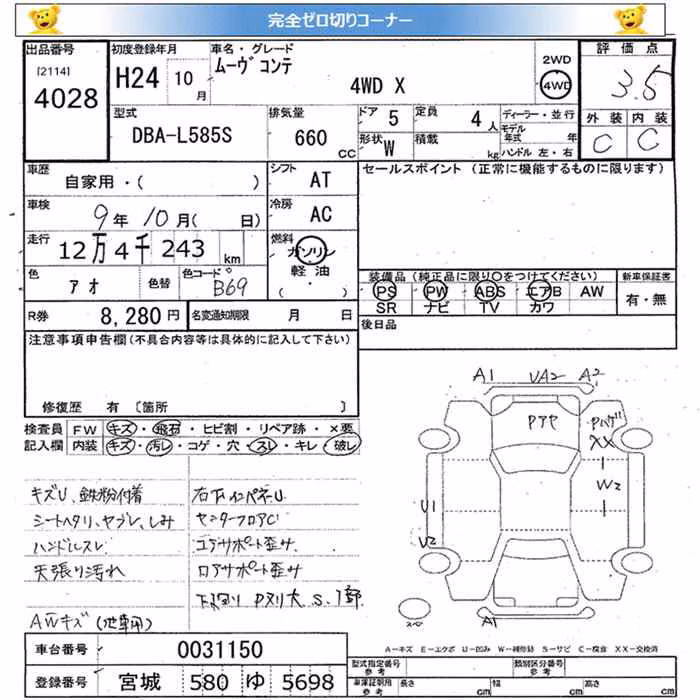 完全ゼロ切りコーナー
出品番号
[2114]
4028
初度登録年月
H24 10 月
車名・グレード
ムーヴ コンテ
4WD X
2WD
4WD
評価点
3.5
外装 内装
C C
型式
DBA-L585S
排気量
660 CC
ドア 5
定員 4 人
形状 W
積載 kg
ディーラー・並行
モデル年式 年
ハンドル 左・右
車歴
自家用・( )
シフト AT
セールスポイント (正常に機能するものに限ります)
車検
9年 10月( 日)
冷房 AC
走行
12万4千243 km
燃料
ガソリン
軽油
(・)
色
アオ
色替
色コード
B69
装備品(純正品に限り○をつけてください)
PS PW ABS エアB AW
SR ナビ TV カワ
新車保証書
有・無
R券 8,280 円
名変通知期限 月 日
後日品
注意事項申告欄(不具合内容等は具体的に記入して下さい)
修復歴 有 [箇所 ]
検査員記入欄
FW キズ・飛石・ヒビ割・リペア跡・×要
内装 キズ・汚レ・コゲ・穴・スレ・キレ・破レ
キズU、鉄粉付着
シートヘタリ、ヤブレ、しみ
ハンドルスレ
天張り汚れ
AWキズ(
右下インパネU
センターフロアC
コアサポート歪サ
ロアサポート歪サ
A1 UA2 A2
XX
W2
U1
U2
A1
A-キズ E-エクボ U-凹み W-補修跡 S-サビ C-腐食 XX-交換済
車台番号 0031150
登録番号 宮城 580 ゆ 5698
型式指定番号 参考
類別区分番号 参考
車庫証明用 参考
長さ cm 幅 cm 高さ cm